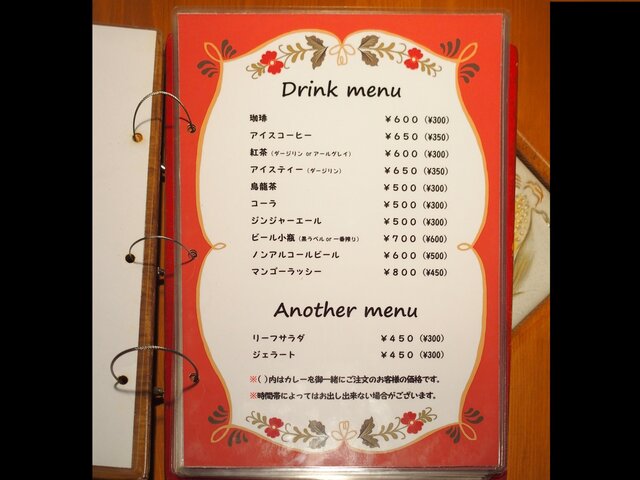 Drink menu
珈琲 ￥６００（¥300）
アイスコーヒー ￥６５０（¥350）
紅茶（ダージリン or アールグレイ） ￥６００（¥300）
アイスティー（ダージリン） ￥６５０（¥350）
烏龍茶 ￥５００（¥300）
コーラ ￥５００（¥300）
ジンジャーエール ￥５００（¥300）
ビール小瓶（黒ラベル or 一番搾り） ￥７００（¥600）
ノンアルコールビール ￥６００（¥500）
マンゴーラッシー ￥８００（¥450）
Another menu
リーフサラダ ￥４５０（¥300）
ジェラート ￥４５０（¥300）
※（ ）内はカレーを御一緒にご注文のお客様の価格です。
※時間帯によってはお出し出来ない場合がございます。